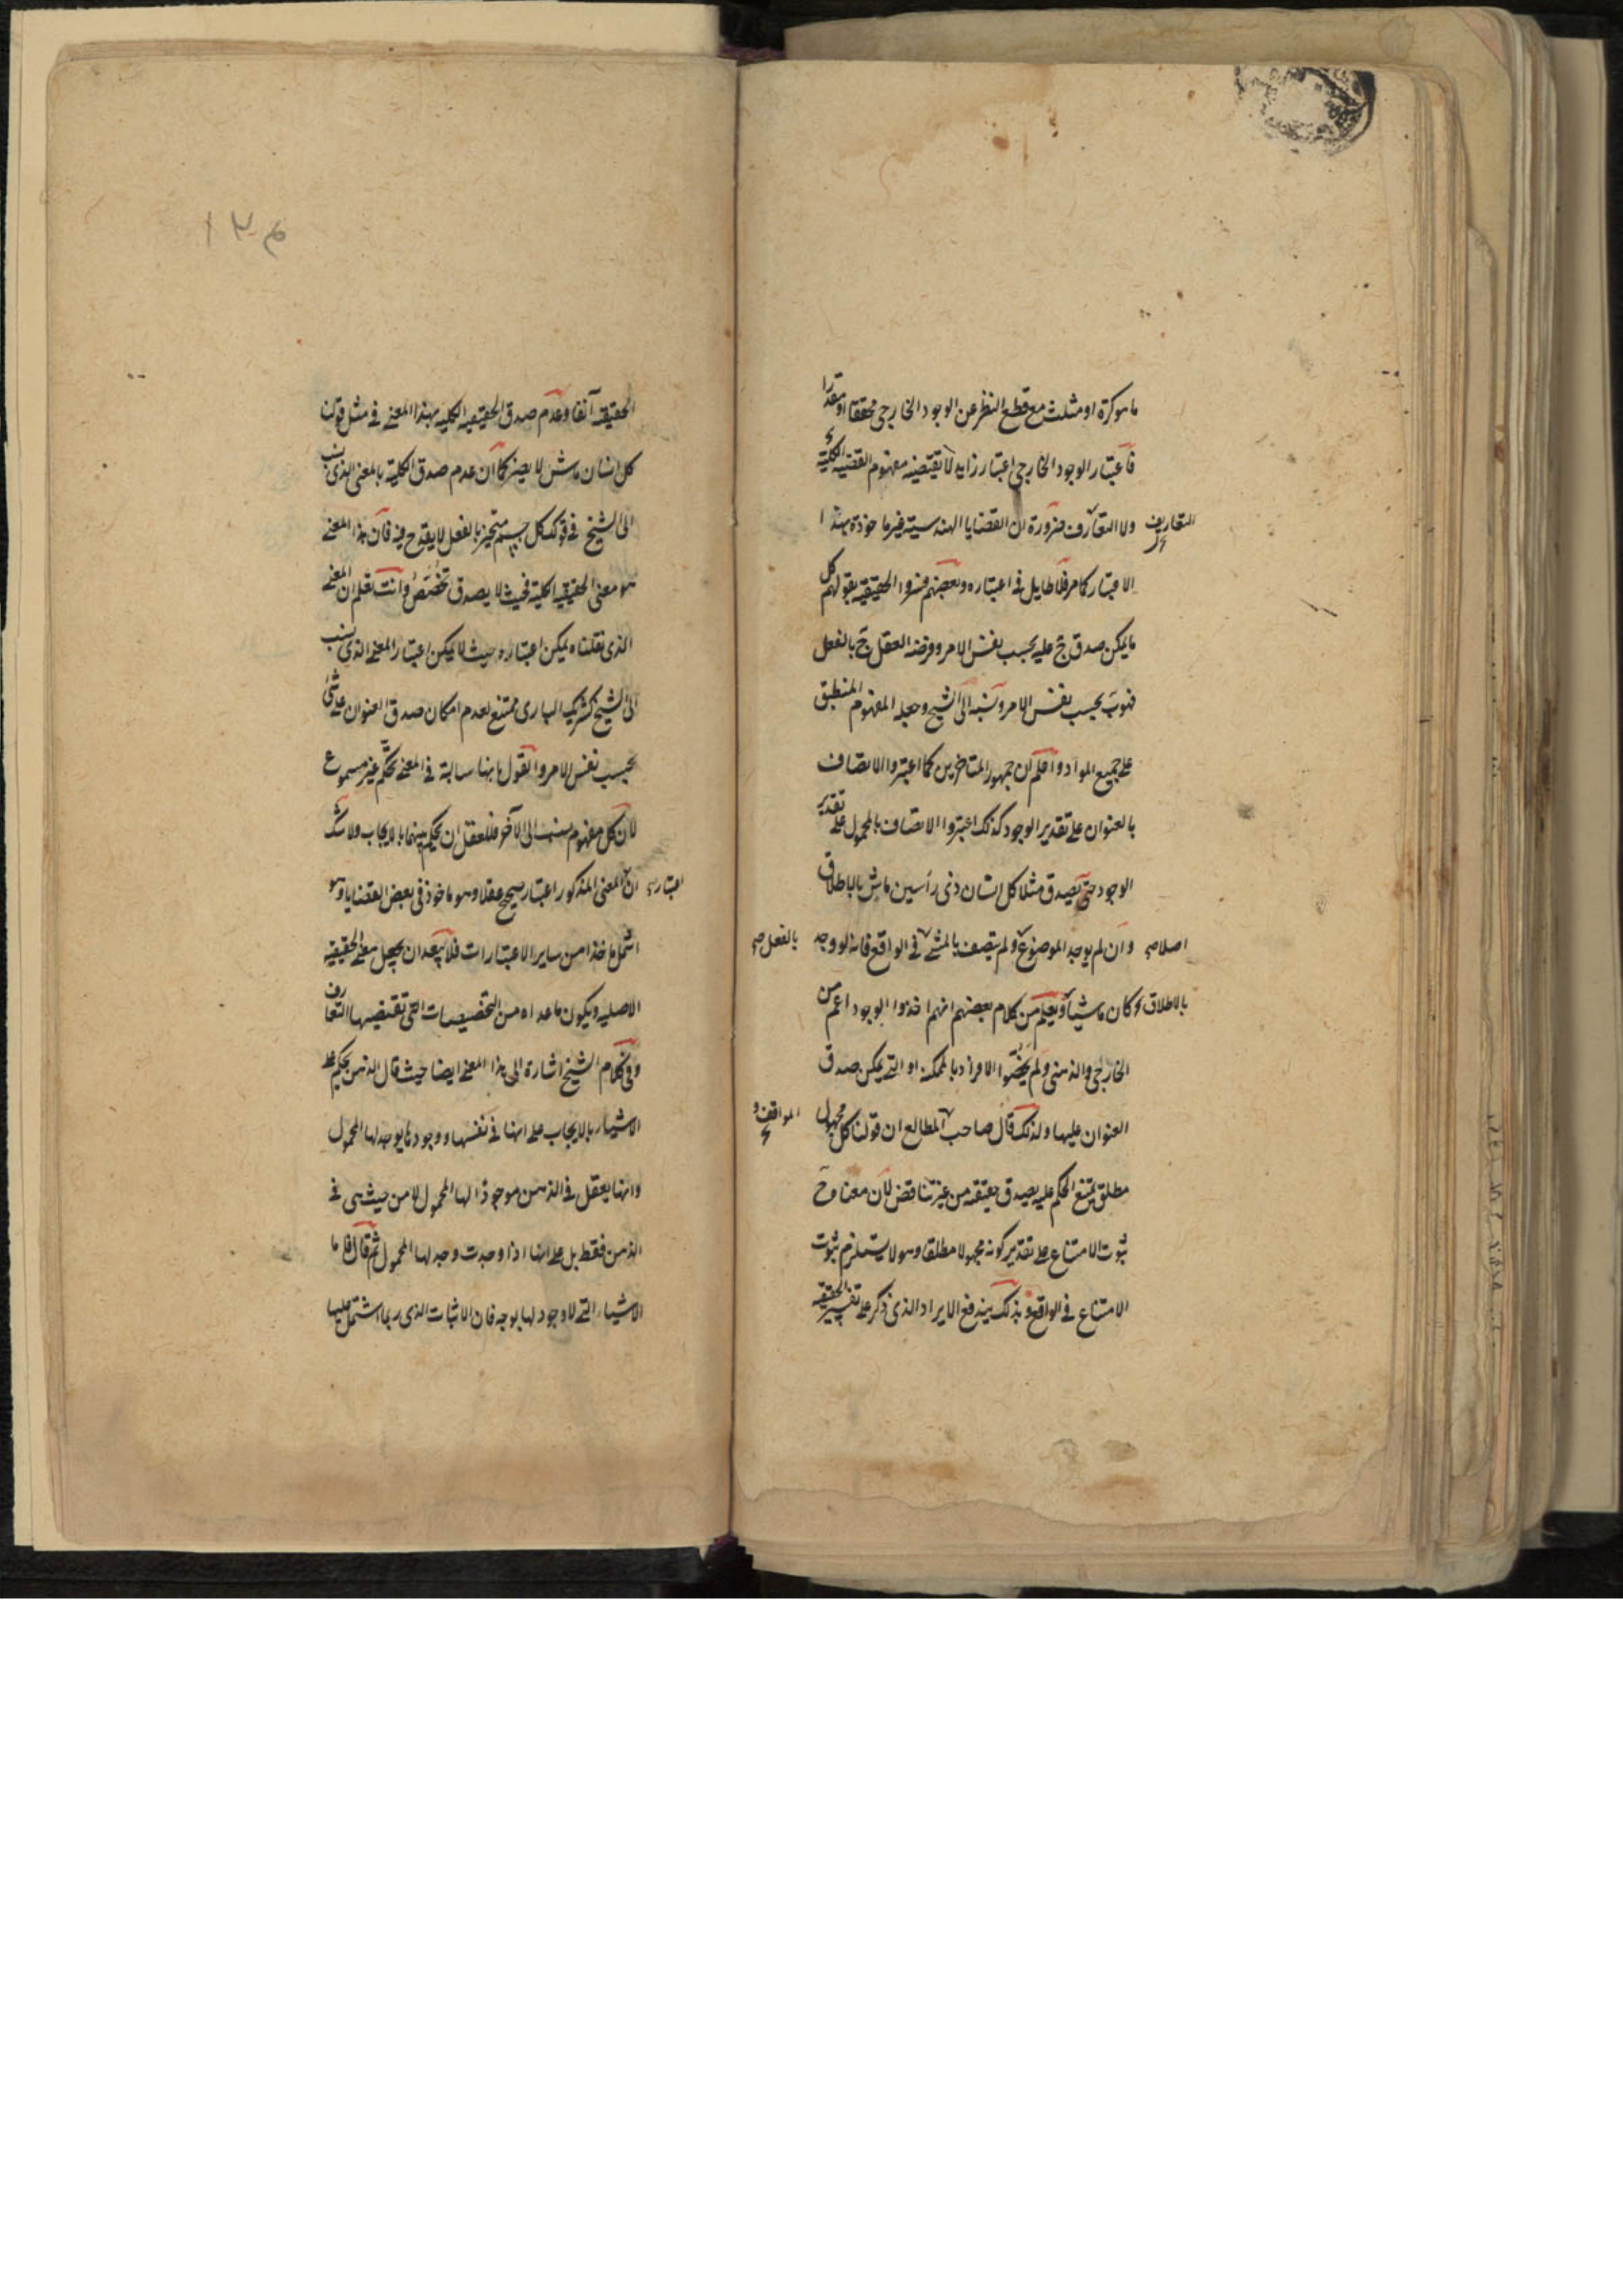 ما هو كرة او مثلث مع قطع النظر عن الوجود الخارجى محققا او مقدرا
فاعتبار الوجود الخارجى اعتبار زايد لا تقتضيه مفهوم القضيه الكلية
ولا التعارف ضرورة ان القضايا الهندسية غير ماخوذة بهذا
التعاريف
الاعتبار كما مر فلا طايل فى اعتباره وبعضهم فسروا الحقيقيه بقولهم كل
ما يمكن صدق ج عليه بحسب نفس الامر وفرضه العقل ج بالفعل
فهو ب بحسب نفس الامر ونسبه الى الشيخ وجعله المفهوم المنطبق
على جميع المواد واعلم ان جمهور المتاخرين كما اعتبروا الاتصاف
بالعنوان على تقدير الوجود كذلك اعتبروا الاتصاف بالمحمول على تقدير
الوجود حتى يصدق مثلا كل انسان ذى رأسين ماش بالاطلاق
وان لم يوجد الموضوع ولم يتصف بالمشى فى الواقع فانه لو وجد
اصلا صح
بالفعل صح
كان ماشيا ويعلم من كلام بعضهم انهم اخذوا الوجود اعم من
بالاطلاق
الخارجى والذهنى ولم يخصوا الافراد بالممكنه او التى يمكن صدق
العنوان عليها ولذلك قال صاحب المطالع ان قولنا كل مجهول
المواقف و
مطلق يمتنع الحكم عليه يصدق حقيقه من غير تناقض لان معناه ح
ثبوت الامتناع على تقدير كونه مجهولا مطلقا وهو لا يستلزم ثبوت
الامتناع فى الواقع وبذلك يندفع الايراد الذى ذكر على تفسير الحقيقه
الحقيقيه آنفا وعدم صدق الحقيقيه الكليه بهذا المعنى فى مثل قولنا
كل انسان ماش لا يضر كما ان عدم صدق الكلية بالمعنى الذى نسب
الى الشيخ فى قولك كل جسم متحيز بالفعل لا يقدح فيه فان هذا المعنى
هو معنى الحقيقيه الكلية فحيث لا يصدق تخصص وانت تعلم ان المعنى
الذى نقلناه يمكن اعتباره حيث لا يمكن اعتبار المعنى الذى نسب
الى الشيخ كشريك البارى ممتنع لعدم امكان صدق العنوان على شئ
بحسب نفس الامر والقول بانها سالبة فى المعنى تحكم غير مسموع
لان كل مفهوم نسب الى الآخر فللعقل ان يحكم بينهما بالايجاب ولا شك
ان المعنى المذكور اعتبار صحيح عقلا وهو ماخوذ فى بعض القضايا وهو
اعتباره
اشمل ماخذا من ساير الاعتبارات فلا يبعد ان يجعل معنى الحقيقيه
الاصليه ويكون ما عداه من التخصيصات التى تقتضيها التعارف
وفى كلام الشيخ اشارة الى هذا المعنى ايضا حيث قال الذهن يحكم على
الاشياء بالايجاب على انها فى نفسها ووجودها يوجد لها المحمول
وانها يعقل فى الذهن موجوذا لها المحمول لا من حيث هى فى
الذهن فقط بل على انها اذا وجدت وجد لها المحمول ثم قال فاما
الاشياء التى لا وجود لها بوجه فان الاثبات الذى ربما اشتمل عليها